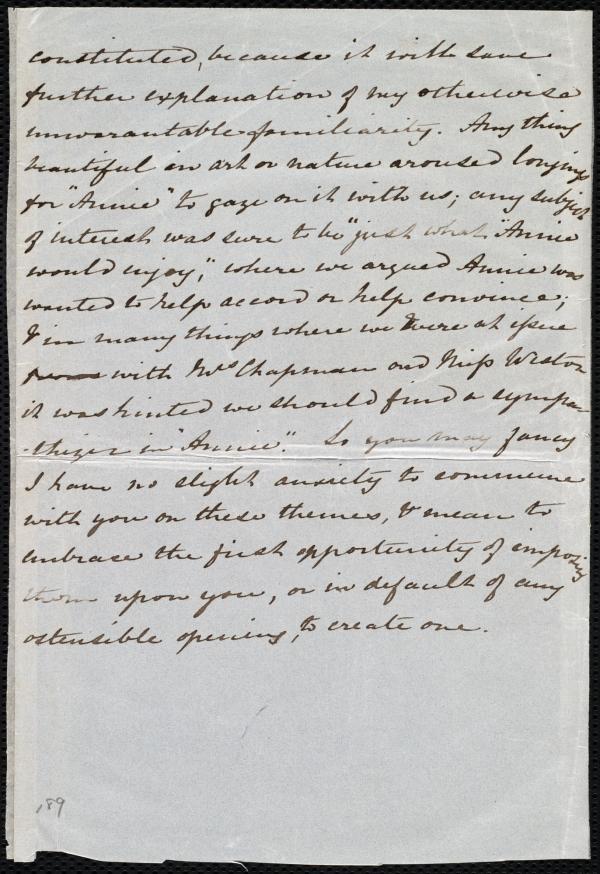 constituted, because it will save
further explanation of my otherwise
unwarantable familiarity. Any thing
beautiful in art or nature aroused longings
for "Annie" to gaze on it with us; any subject
of interest was sure to be "just what Annie
would enjoy," where we argued Annie was
wanted to help accord or help convince;
& in many things where we were at issue
with Mrs Chapman and Miss Weston
it was hinted we should find a sympa-
-thizer in "Annie". So you may fancy
I have no slight anxiety to commune
with you on these themes, & mean to
embrace the first opportunity of imposing
them upon you, or in default of any
ostensible opening, to create one.
189